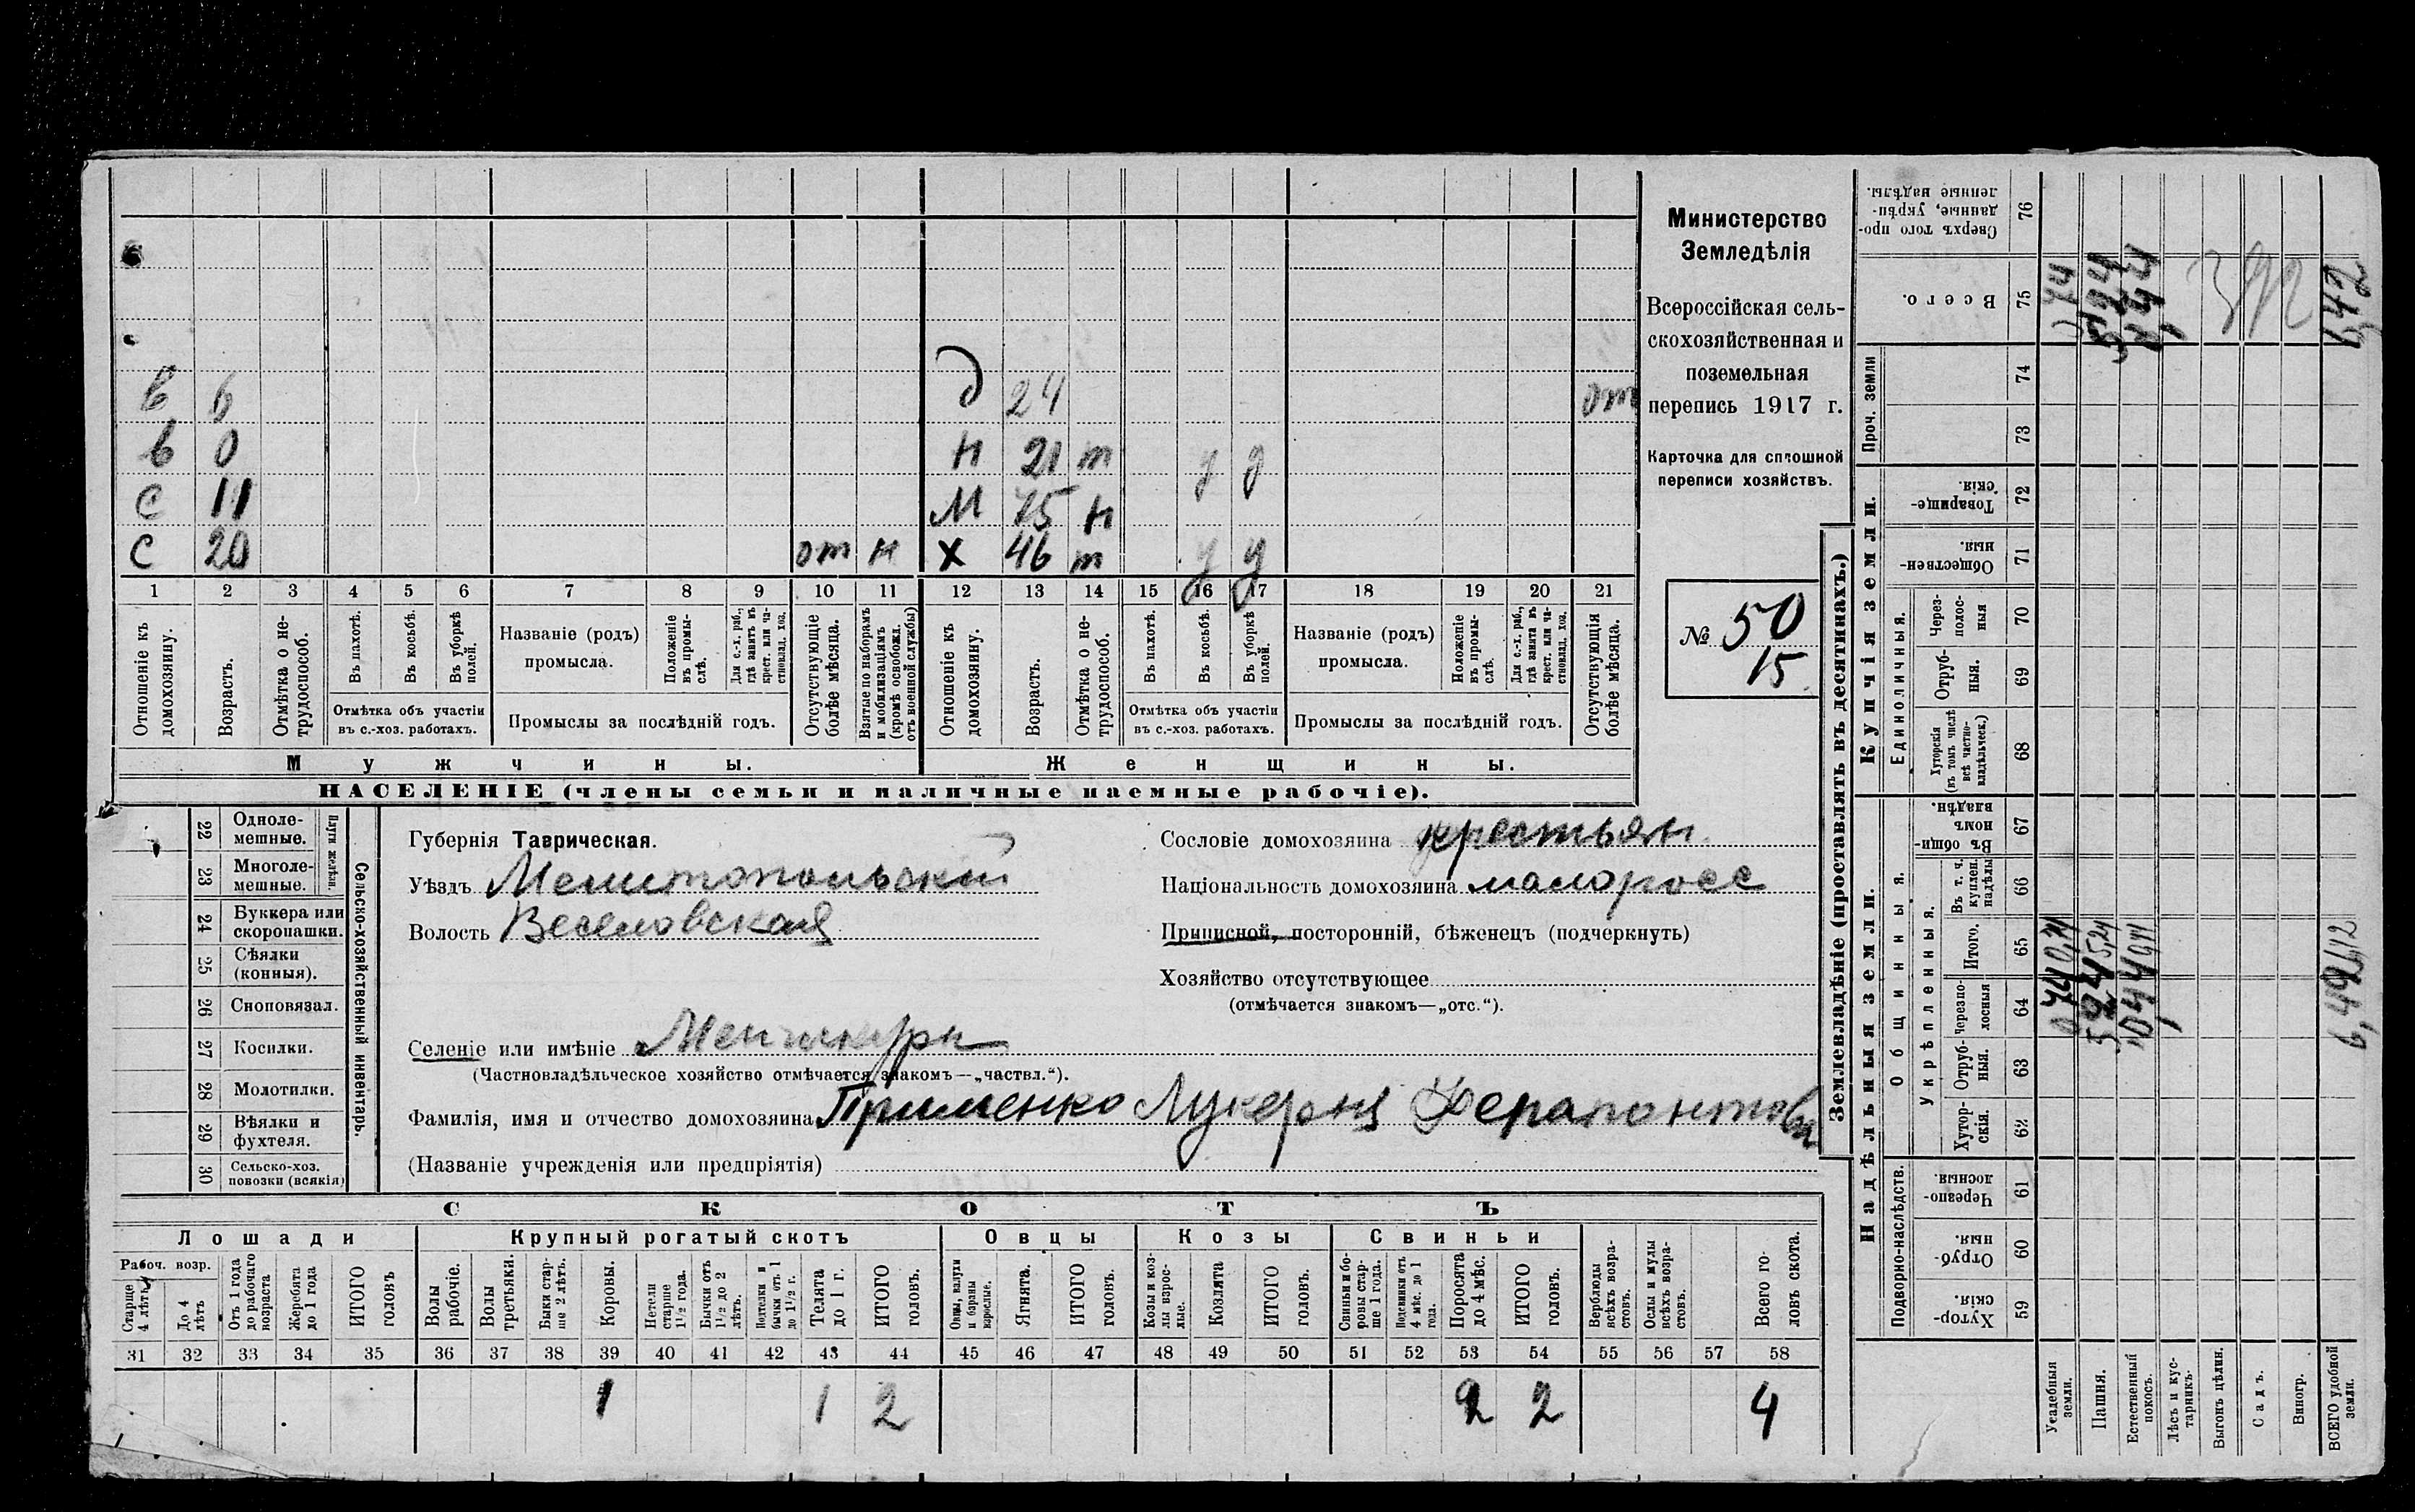 в 6 д 24 от
в 0 н 21 т у у
с 11 м 75 н
с 20 от н х 46 т у у
1 2 3 4 5 6 7 8 9 10 11 12 13 14 15 16 17 18 19 20 21
Отношеніе къ домохозяину.
Возрастъ.
Отмѣтка о не-трудоспособ.
Въ пахотѣ.
Въ косьбѣ.
Въ уборкѣ полей.
Отмѣтка объ участіи
въ с.-хоз. работахъ.
Названіе (родъ)
промысла.
Положеніе въ промы-слѣ.
Для с.-х. раб., гдѣ занятъ въ крест. или ча-стновлад. хоз.
Промыслы за послѣдній годъ.
Отсутствующіе болѣе мѣсяца.
Взятые по наборамъ и мобилизаціямъ (кромѣ освобожд. отъ военной службы)
Отношеніе къ домохозяину.
Возрастъ.
Отмѣтка о не-трудоспособ.
Въ пахотѣ.
Въ косьбѣ.
Въ уборкѣ полей.
Отмѣтка объ участіи
въ с.-хоз. работахъ.
Названіе (родъ)
промысла.
Положеніе въ промы-слѣ.
Для с.-х. раб., гдѣ занята въ крест. или ча-стновлад. хоз.
Промыслы за послѣдній годъ.
Отсутствующія болѣе мѣсяца.
Мужчины. Женщины.
НАСЕЛЕНІЕ (члены семьи и наличные наемные рабочіе).
Министерство
Земледѣлія
Всероссійская сель-
скохозяйственная и
поземельная
перепись 1917 г.
Карточка для сплошной
переписи хозяйствъ.
№ 50
15
22 Одноле-мешные.
23 Многоле-мешные.
Плуги желѣзн.
24 Буккера или скоропашки.
25 Сѣялки (конныя).
26 Сноповязал.
27 Косилки.
28 Молотилки.
29 Вѣялки и фухтеля.
30 Сельско-хоз. повозки (всякія)
Сельско-хозяйственный инвентарь.
Губернія Таврическая.
Уѣздъ Мелитопольскій
Волость Веселовская
Сословіе домохозяина крестьян.
Національность домохозяина малоросс
Приписной, посторонній, бѣженецъ (подчеркнуть)
Хозяйство отсутствующее
(отмѣчается знакомъ—„отс.“).
Селеніе или имѣніе Менчикуры
(Частновладѣльческое хозяйство отмѣчается знакомъ—„частвл.“).
Фамилія, имя и отчество домохозяина Лукерия Ферапонтова
(Названіе учрежденія или предпріятія)
СКОТЪ
Лошади Крупный рогатый скотъ Овцы Козы Свиньи
Рабоч. возр.
Старше 4 лѣтъ
До 4 лѣтъ
Отъ 1 года до рабочаго возраста
Жеребята до 1 года
ИТОГО головъ
Волы рабочіе.
Волы третьяки.
Быки стар-ше 2 лѣтъ.
Коровы.
Нетели старше 1½ года.
Бычки отъ 1½ до 2 лѣтъ.
Подтелки и бычки отъ 1 до 1½ г.
Телята до 1 г.
ИТОГО головъ.
Овцы, валухи и бараны взрослые.
Ягнята.
ИТОГО головъ.
Козы и коз-лы взрос-лые.
Козлята
ИТОГО головъ.
Свиньи и бо-ровы стар-ше 1 года.
Подсвинки отъ 4 мѣс. до 1 года.
Поросята до 4 мѣс.
ИТОГО головъ.
Верблюды всѣхъ возра-стовъ.
Ослы и мулы всѣхъ возра-стовъ.
Всего го-ловъ скота.
31 32 33 34 35 36 37 38 39 40 41 42 43 44 45 46 47 48 49 50 51 52 53 54 55 56 57 58
1 1 2 2 2 4
Землевладѣніе (проставлять въ десятинахъ.)
Надѣльныя земли.
Купчія земли.
Проч. земли
Подворно-наслѣдств.
Общинныя.
Укрѣпленныя.
Единоличныя.
Хутор-скія. 59
Отруб-ныя. 60
Черезпо-лосныя. 61
Хутор-скія. 62
Отруб-ныя. 63
Черезпо-лосныя 64
Итого. 65
Въ т. ч. куплен. надѣлы 66
Въ общин-номъ владѣн. 67
Хуторскія (въ томъ числѣ всѣ частно-владѣльческ.) 68
Отруб-ныя. 69
Через-полос-ныя 70
Обществен-ныя. 71
Товарище-скія. 72
73
74
Всего. 75
Сверхъ того про-данные, укрѣп-ленные надѣлы. 76
Усадебныя земли.
Пашня.
Естественный покосъ.
Лѣсъ и кус-тарникъ.
Выгонъ цѣлин.
Садъ.
Виногр.
ВСЕГО удобной земли.